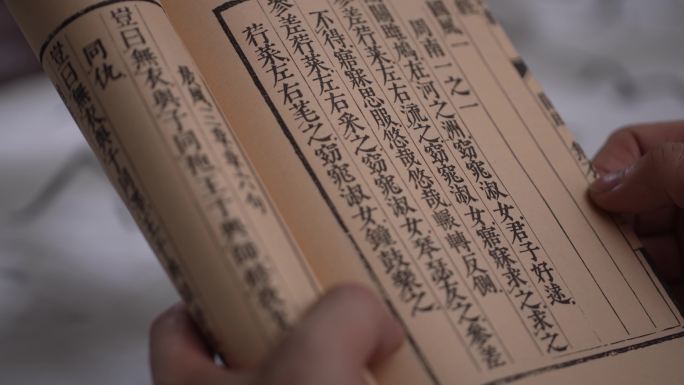 國風一
周南一之一
關關雎鳩在河之洲窈窕淑女君子好逑
參差荇菜左右流之窈窕淑女寤寐求之求之
不得寤寐思服悠哉悠哉輾轉反側
參差荇菜左右采之窈窕淑女琴瑟友之參差
荇菜左右芼之窈窕淑女鐘鼓樂之
三章章六句
豈曰無衣與子同袍王于興師
同仇
豈曰無衣與子同